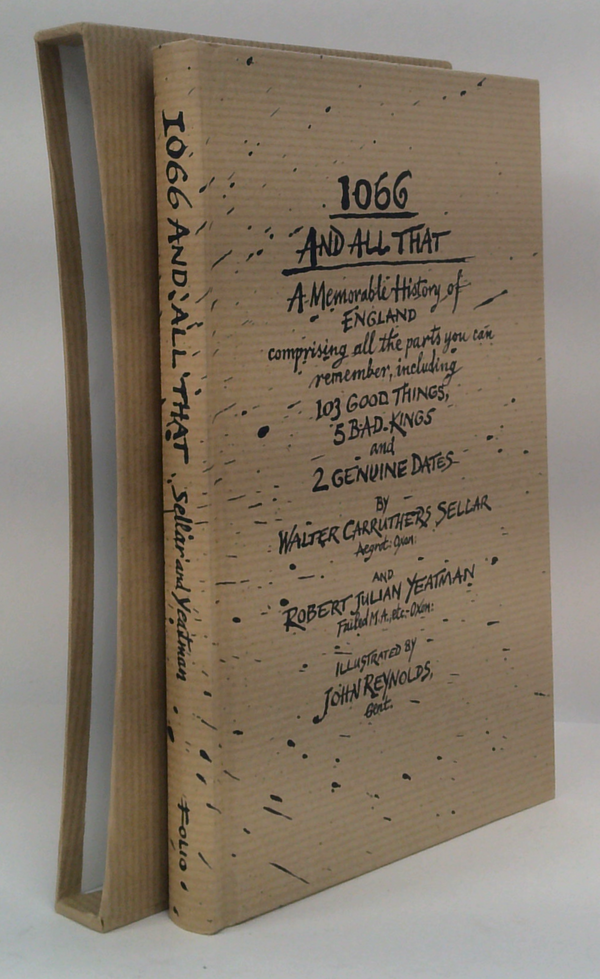 1066 AND ALL THAT Sellar and Yeatman FOLIO
1066
AND ALL THAT
A Memorable History of
ENGLAND
comprising all the parts you can
remember, including
103 GOOD THINGS,
5 BAD KINGS
and
2 GENUINE DATES
BY
WALTER CARRUTHERS SELLAR
Aegrot: Oxon:
AND
ROBERT JULIAN YEATMAN
Failed M.A., etc: Oxon:
ILLUSTRATED BY
JOHN REYNOLDS,
Gent.